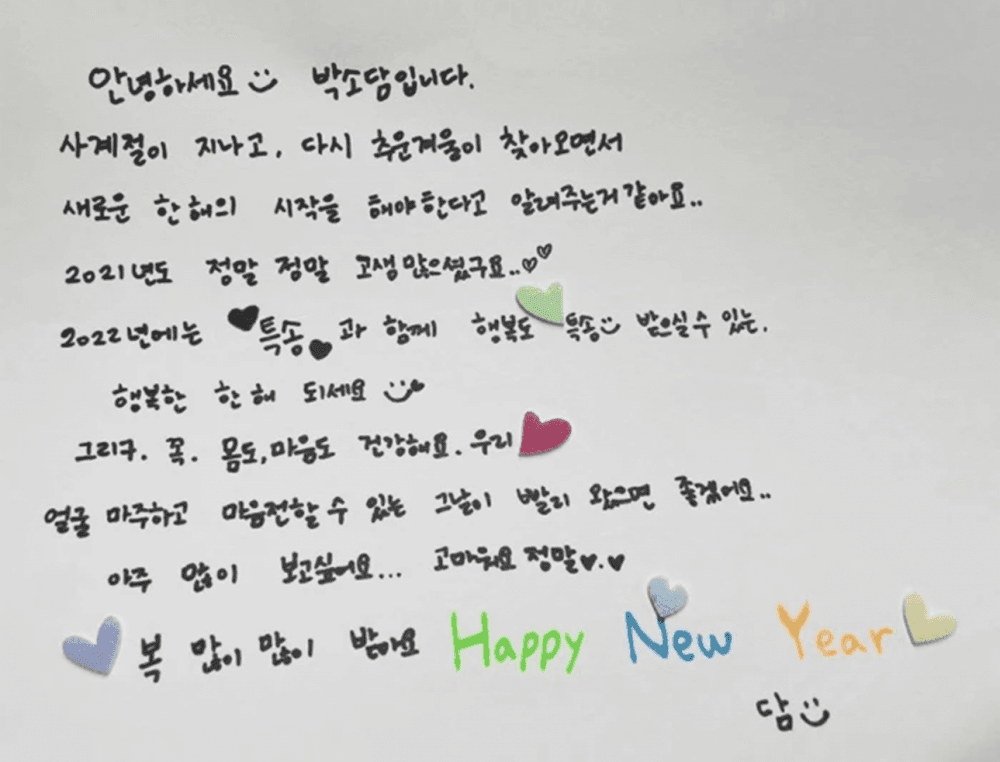 안녕하세요 박소담입니다.
사계절이 지나고, 다시 추운겨울이 찾아오면서
새로운 한해의 시작을 해야한다고 알려주는거같아요..
2021년도 정말 정말 고생많으셨구요..♡♡
2022년에는 ♥특송♥과 함께 행복도 특송 받으실수 있는,
행복한 한해 되세요
그리구. 꼭. 몸도,마음도 건강해요. 우리
얼굴 마주하고 마음전할수 있는 그날이 빨리 왔으면 좋겠어요..
아주 많이 보고싶어요... 고마워요 정말♥.♥
복 많이 많이 받아요 Happy New Year
담